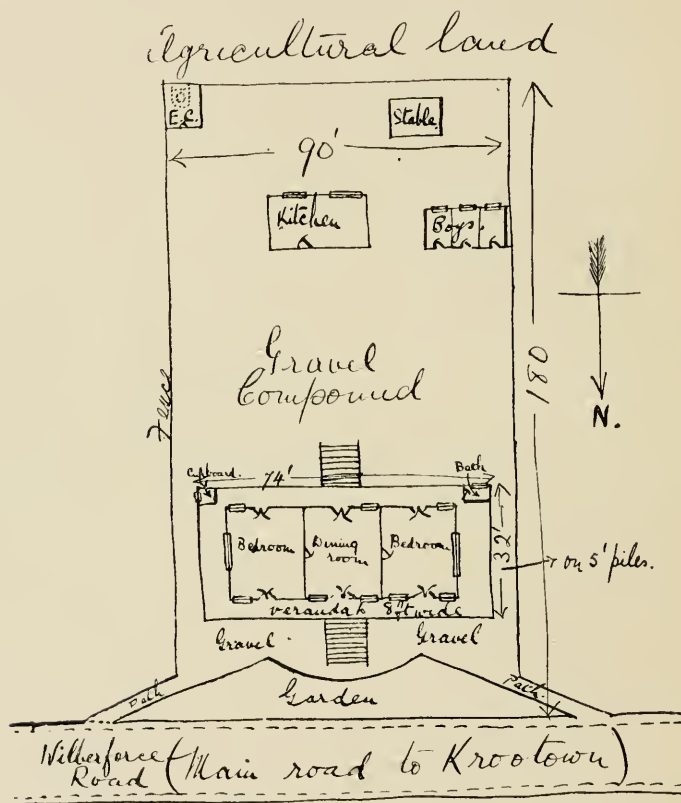 Agricultural land
E.C.
Stable
90'
Kitchen
Boys.
Gravel
Compound
Fence
180
N.
Cupboard.
74'
Bath
Bedroom
Dining
room
Bedroom
32'
on 5' piles.
verandah 8ft wide
Gravel
Gravel
Path
Garden
Path.
Wilberforce
Road
(Main road to Krootown)